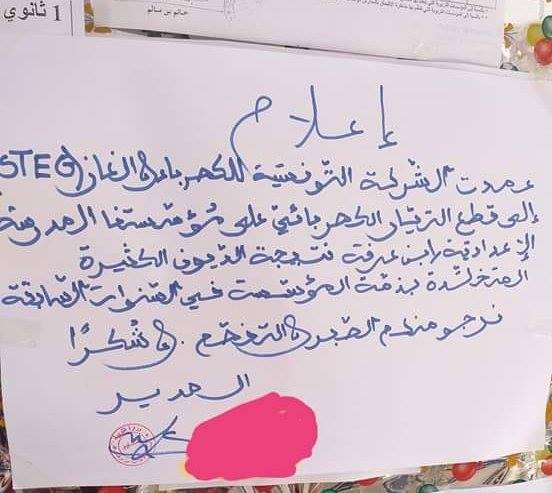 1 ثانوي
حاتم بن سالم
إعلام
عمدت الشركة التونسية للكهرباء و الغاز STEG
إلى قطع التيار الكهربائي على مؤسستنا المدرسة
الإعدادية بابن عرفة نتيجة الديون الكثيرة
المتخلدة بذمة المؤسسة في السنوات السابقة
نرجو منكم الصبر و التفهم. و شكرًا
المدير